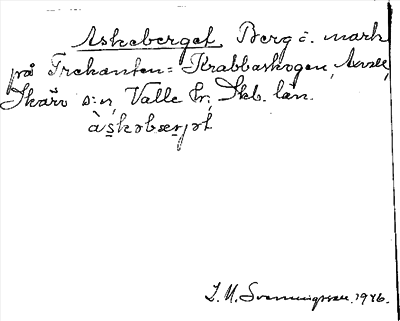 Askeberget, Berg o. mark
på Trekanten = Krabbaskogen,
Skärv s:n, Valle hr, Skb. län.
àskəbærjət
S. M. Svenningsson. 1946.